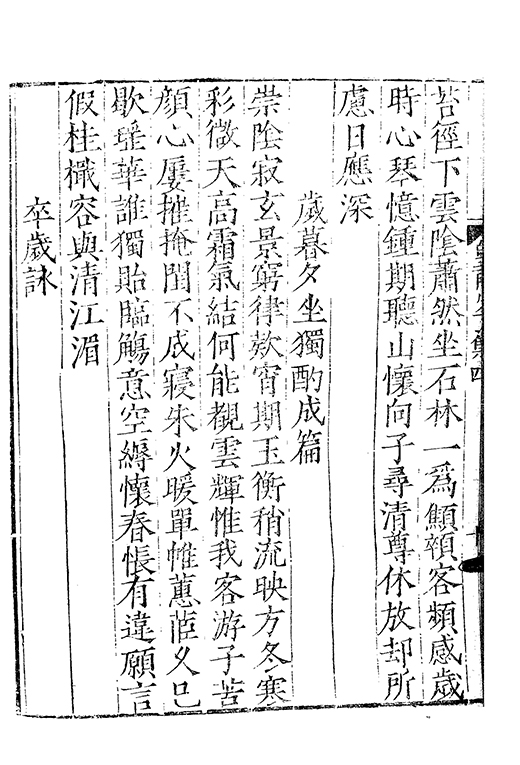 苔徑下雲陰蕭然坐石林一爲顦顇客頻感歲
時心琴憶鍾期聽山懷向子尋清尊休放却所
慮日應深
歲暮夕坐獨酌成篇
崇陰寂玄景窮律欻宵期玉衡稍流映方冬寒
彩微天高霜氣結何能覩雲輝惟我客游子苦
顔心屢摧掩閨不成寢朱火暖單帷蕙茝乂已
歇瑤華誰獨貽臨觴意空緬懷春悵有違願言
假桂檝容與清江湄
卒歲詠